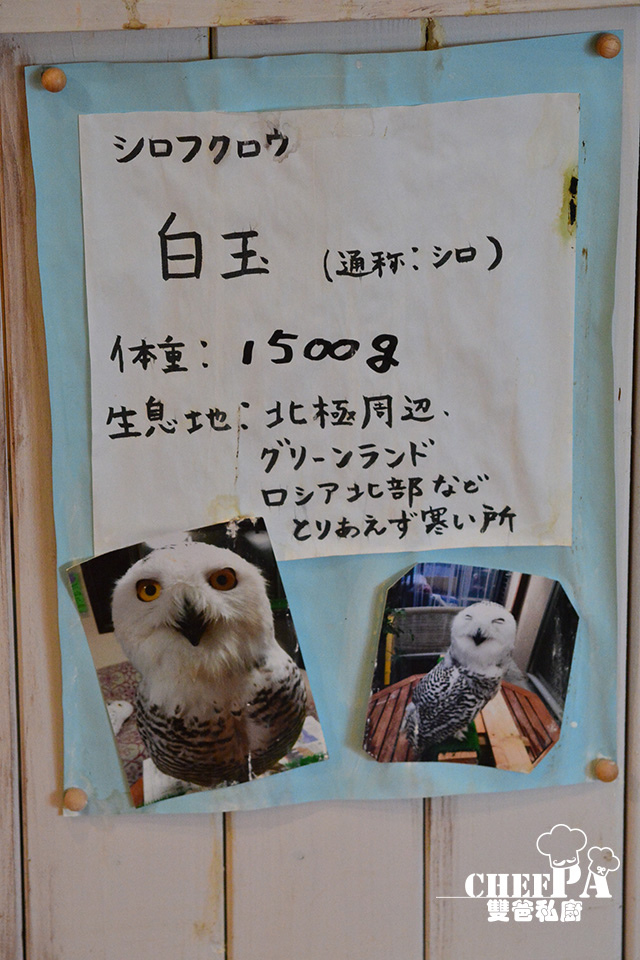 シロフクロウ
白玉 (通称:シロ)
体重: 1500g
生息地: 北極周辺、
グリーンランド
ロシア北部など
とりあえず寒い所
CHEFPA
雙爸私廚